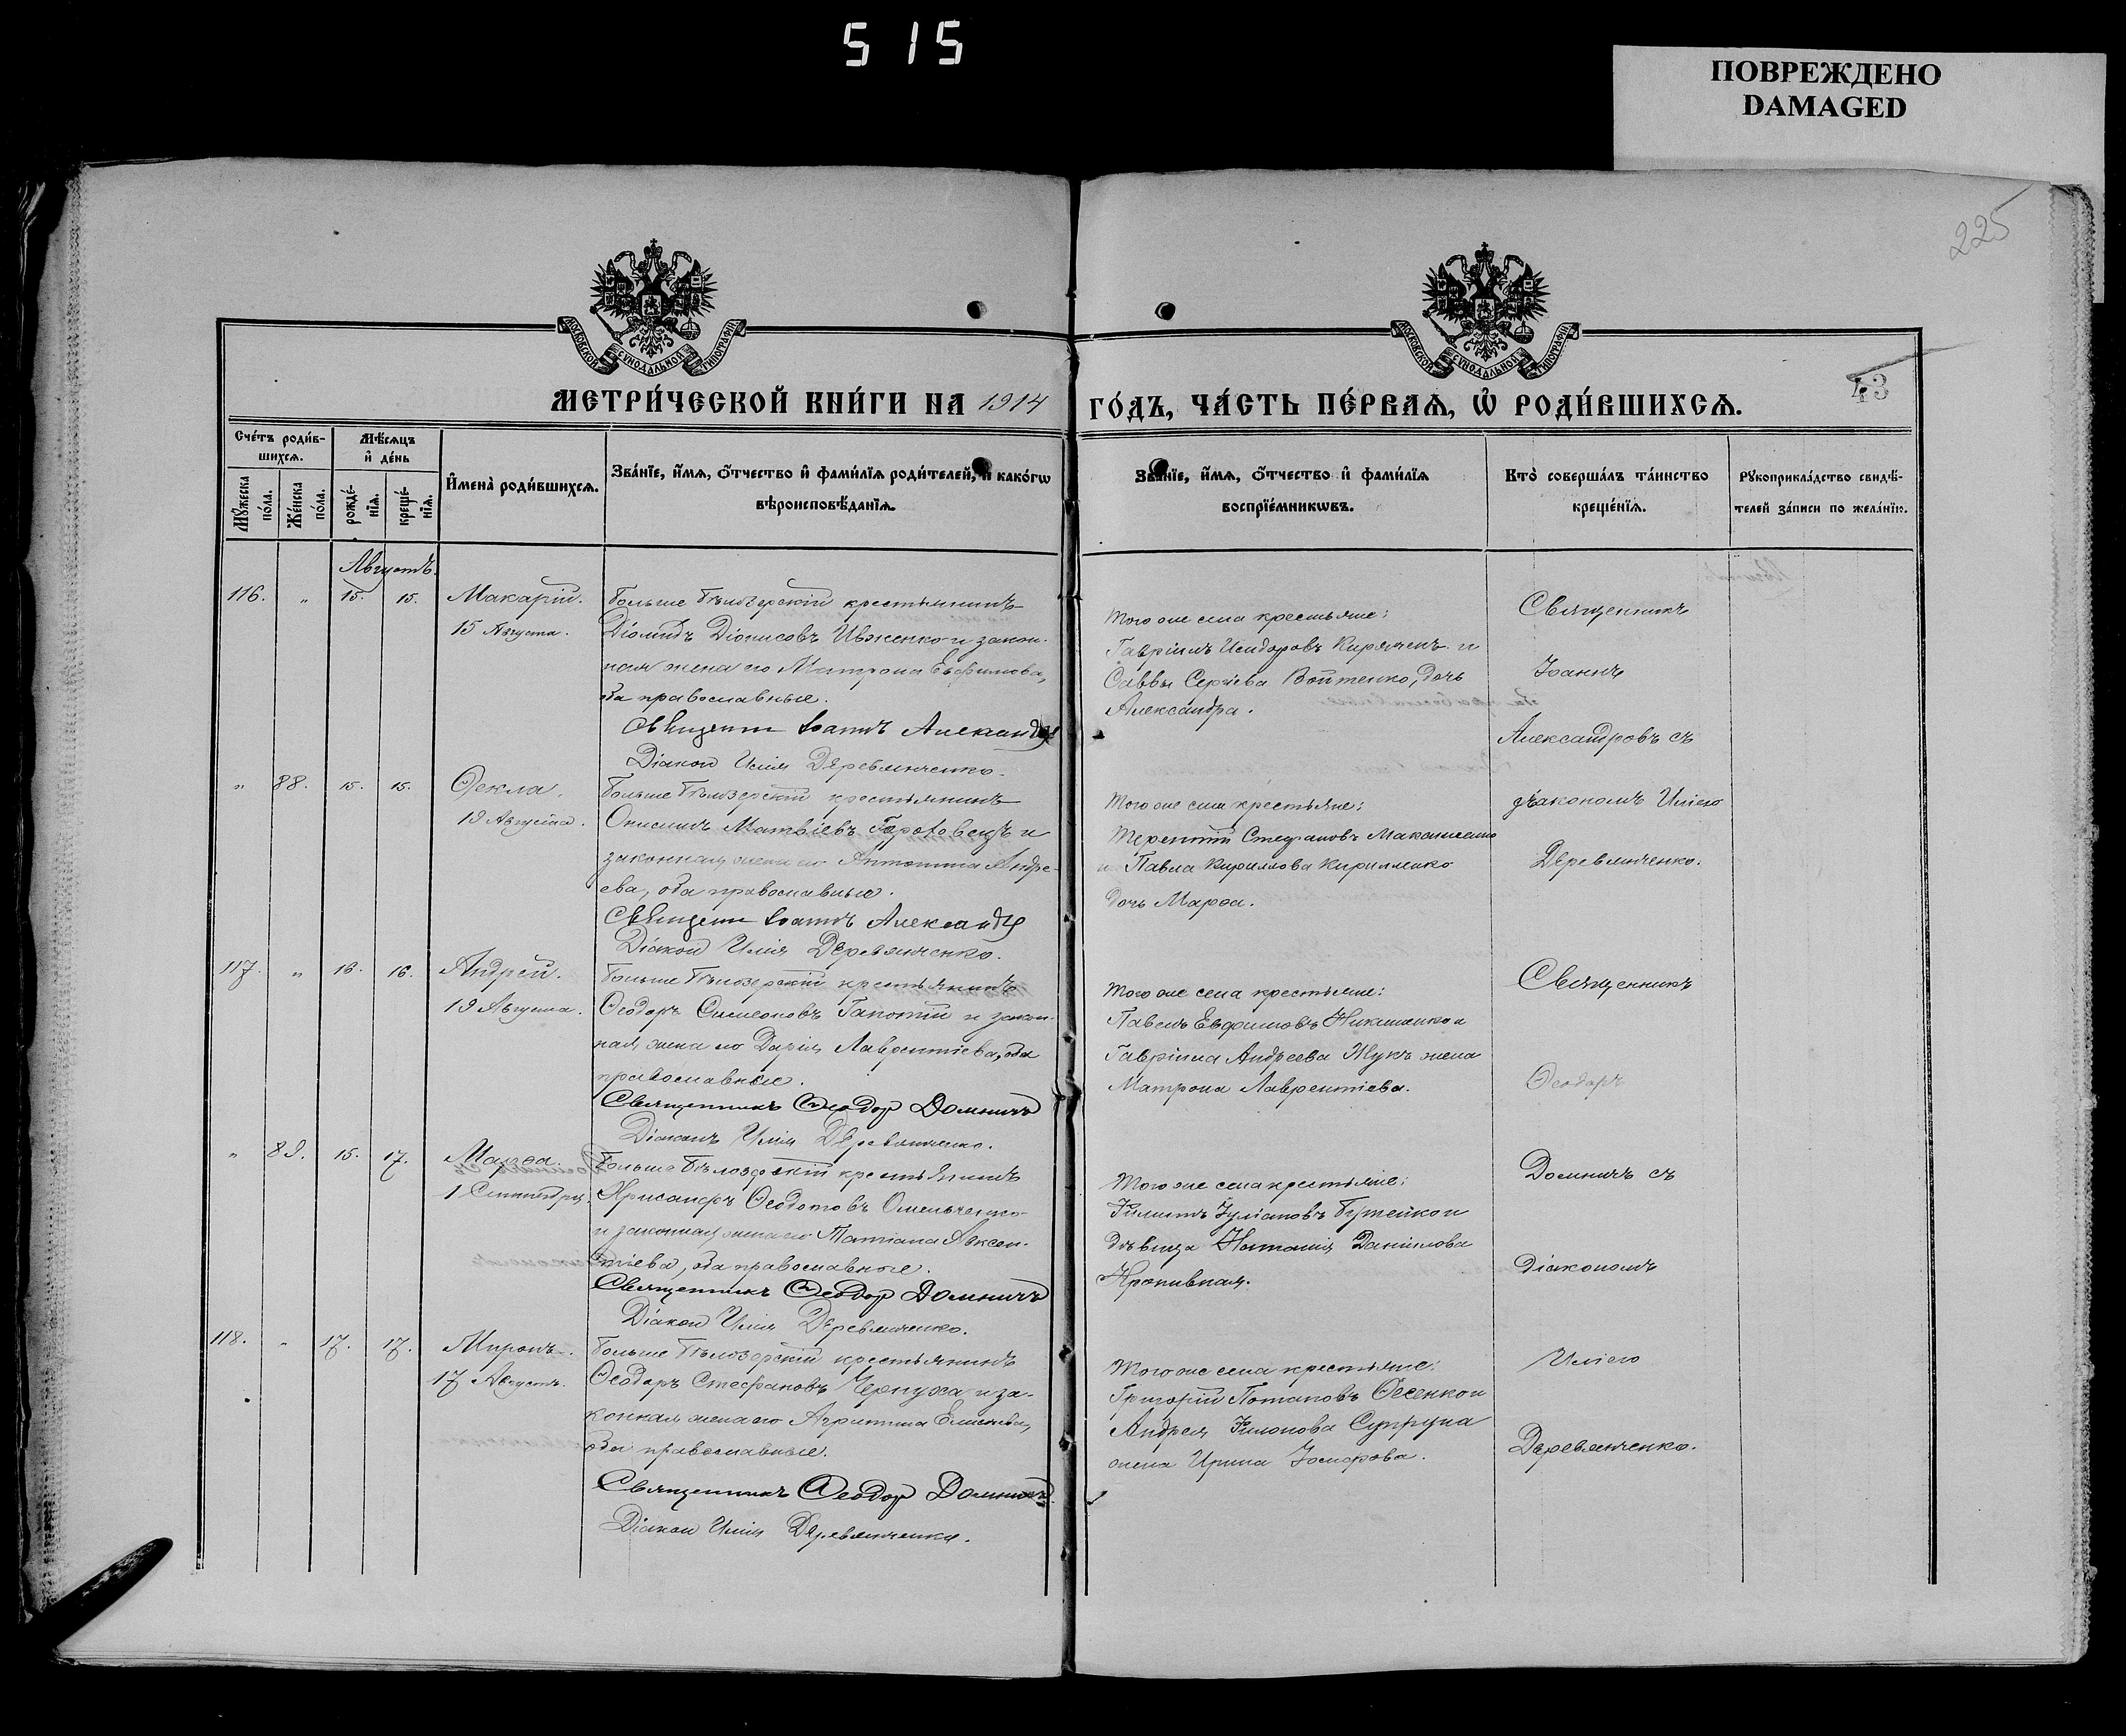 515
ПОВРЕЖДЕНО
DAMAGED
225
МОСКОВСКОЙ СѴНОДАЛЬНОЙ ТИПОГРАФІИ
МОСКОВСКОЙ СѴНОДАЛЬНОЙ ТИПОГРАФІИ
43
МЕТРИ́ЧЕСКОЙ КНИ́ГИ НА 1914 ГО́ДЪ, ЧА́СТЬ ПЕ́РВАѦ, Ѡ҆ РОДИ́ВШИХСѦ.
Сче́тъ роди́в-
шихсѧ.
Мꙋ́жеска
по́ла.
Же́нска
по́ла.
Мѣ́сѧцъ
и҆ де́нь
рожде́-
нїѧ.
креще́-
нїѧ.
И҆мена̀ роди́вшихсѧ.
Зва́нїе, и҆́мѧ, ѻ҆́тчество и҆ фами́лїѧ роди́телей, и҆ како́гѡ
вѣроисповѣ́данїѧ.
Зва́нїе, и҆́мѧ, ѻ҆́тчество и҆ фами́лїѧ
воспрїе́мникѡвъ.
Кто̀ соверша́лъ та́инство
креще́нїѧ.
Рꙋкоприкла́дство свидѣ́-
телей за́писи по жела́нїю.
Августъ.
116. " 15. 15. Макарій.
15 Августа.
Больше Бѣлозерскій крестьянинъ
Діомидъ Діонисовъ Ивженко и закон-
ная жена его Матрона Евфимова,
оба православные.
Священник Іоаннъ Александр
Діакон Илія Деревянченко.
Того же села крестьяне:
Гавріилъ Исидоровъ и
Саввы Сергіева Войтенко, дочь
Александра.
Священникъ
Іоаннъ
Александровъ съ
діакономъ Иліею
Деревянченко.
" 88. 15. 15. Ѳекла.
19 Августа.
Больше Бѣлозерскій крестьянинъ
Онисимъ Матвіевъ и
законная жена его Антонина Андре-
ева, оба православные.
Священник Іоаннъ Александр
Діакон Илія Деревянченко.
Того же села крестьяне:
Терентій Стефановъ
и Павла Кирилова Кириленко
дочь Марѳа.
117. " 16. 16. Андрей.
19 Августа.
Больше Бѣлозерскій крестьянинъ
Ѳеодоръ Симеоновъ и закон-
ная жена его Дарія Лаврентіева, оба
православные.
Священникъ Ѳеодор Домничъ
Діаконъ Илія Деревянченко.
Того же села крестьяне:
Павелъ Евфимовъ и
Гавріила Андреева Жукъ жена
Матрона Лаврентіева.
Священникъ
Ѳеодоръ
Домничъ съ
діакономъ
Иліею
Деревянченко.
" 89. 15. 17. Марѳа.
1 Сентября.
Больше Бѣлозерскій крестьянинъ
Хрисанфъ Ѳеодотовъ Омельченко
и законная жена его Татіана Авксен-
тіева, оба православные.
Священникъ Ѳеодор Домничъ
Діакон Илія Деревянченко.
Того же села крестьяне:
Филиппъ Іуліановъ и
дѣвица Наталія Даніилова
Кропивная.
118. " 17. 17. Миронъ.
17 Августъ.
Больше Бѣлозерскій крестьянинъ
Ѳеодоръ Стефановъ Чернуха и за-
конная жена его Агриппина
оба православные.
Священникъ Ѳеодор Домничъ
Діакон Илія Деревянченко.
Того же села крестьяне:
Григорій Потаповъ Ѳесенко и
Андрея Супруна
жена Ирина